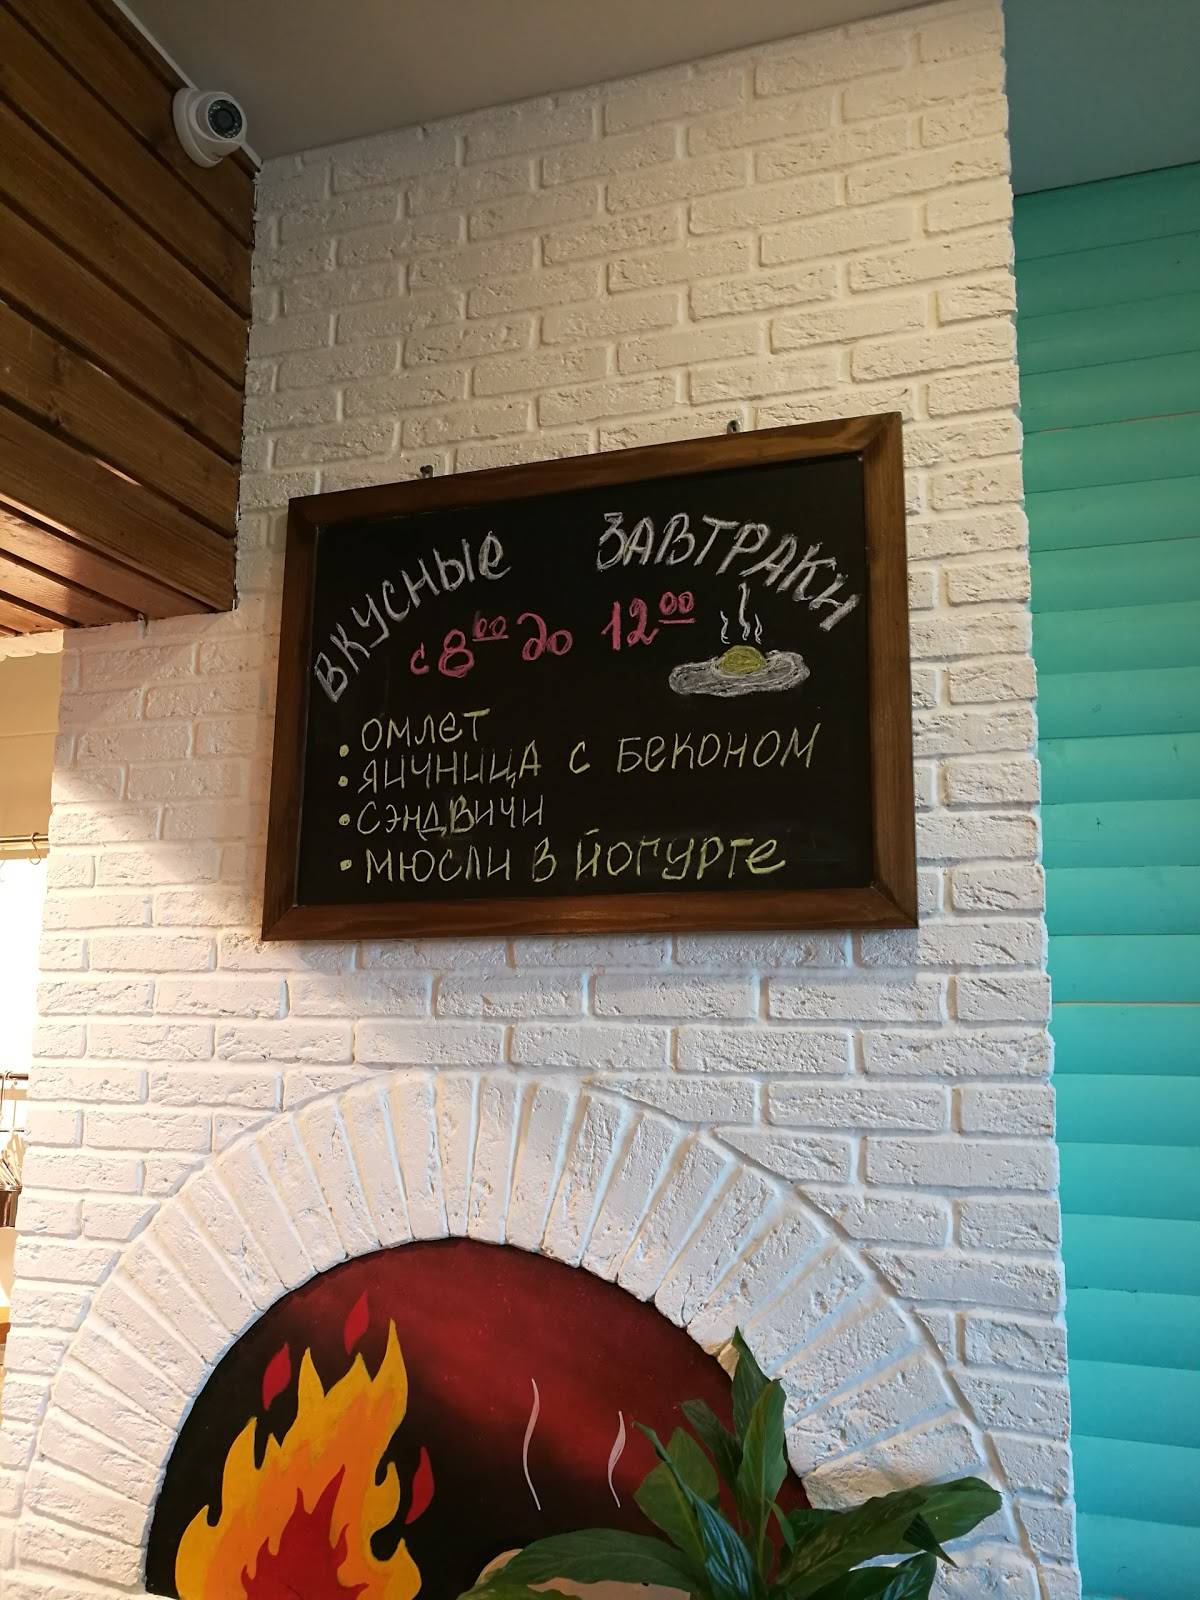 ВКУСНЫЕ ЗАВТРАКИ
с 8 00 до 12 00
• ОМЛЕТ
• ЯИЧНИЦА С БЕКОНОМ
• СЭНДВИЧИ
• МЮСЛИ В ЙОГУРТЕ